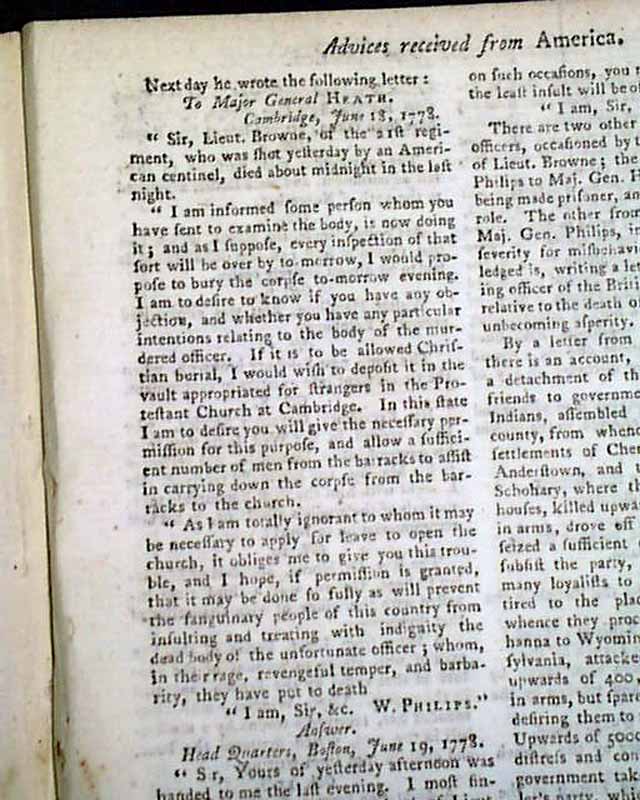 Advices received from America.
Next day he wrote the following letter :
To Major General HEATH.
Cambridge, June 18, 1778.
“ Sir, Lieut. Browne, of the 21ſt regi-
ment, who was ſhot yeſterday by an Ameri-
can centinel, died about midnight in the laſt
night.
“ I am informed ſome perſon whom you
have ſent to examine the body, is now doing
it ; and as I ſuppoſe, every inſpection of that
ſort will be over by to-morrow, I would pro-
poſe to bury the corpſe to-morrow evening.
I am to deſire to know if you have any ob-
jection, and whether you have any particular
intentions relating to the body of the mur-
dered officer. If it is to be allowed Chriſ-
tian burial, I would wiſh to depoſit it in the
vault appropriated for ſtrangers in the Pro-
teſtant Church at Cambridge. In this ſtate
I am to deſire you will give the neceſſary per-
miſſion for this purpoſe, and allow a ſuffici-
ent number of men from the barracks to aſſiſt
in carrying down the corpſe from the bar-
racks to the church.
“ As I am totally ignorant to whom it may
be neceſſary to apply for leave to open the
church, it obliges me to give you this trou-
ble, and I hope, if permiſſion is granted,
that it may be done ſo fully as will prevent
the ſanguinary people of this country from
inſulting and treating with indignity the
dead body of the unfortunate officer ; whom,
in their rage, revengeful temper, and barba-
rity, they have put to death
“ I am, Sir, &c. W. PHILIPS.”
Anſwer.
Head Quarters, Boſton, June 19, 1778.
“ Sr, Yours of yeſterday afternoon was
handed to me the laſt evening. I moſt ſin-
on ſuch occaſions, you
the leaſt inſult will be
“ I am, Sir,
There are two other
officers, occaſioned by
of Lieut. Browne ; the
Philips to Maj. Gen. H
being made priſoner,
role. The other from
Maj. Gen. Philips, in
ſeverity for miſbehavi
ledged is, writing a
ing officer of the Briti
relative to the death o
unbecoming aſperity.
By a letter from
there is an account,
a detachment of th
friends to governme
Indians, aſſembled
county, from whenc
ſettlements of Cher
Anderſtown, and
Schohary, where th
houſes, killed upwa
in arms, drove off
ſeized a ſufficient
ſubſiſt the party,
many loyaliſts to
tired to the plac
whence they proc
hanna to Wyomin
ſylvania, attacke
upwards of 400,
in arms, but ſpare
deſiring them to
Upwards of 5000
diſtreſs and con
government tak
party, which